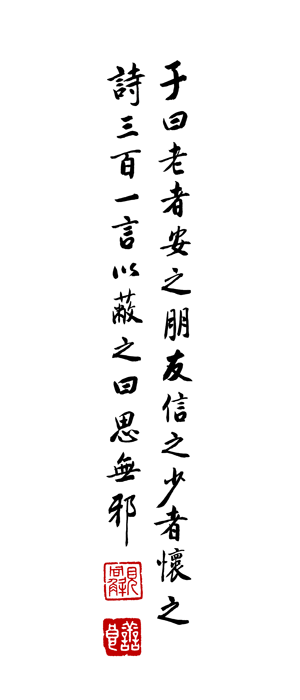 子曰老者安之朋友信之少者懷之
詩三百一言以蔽之曰思無邪